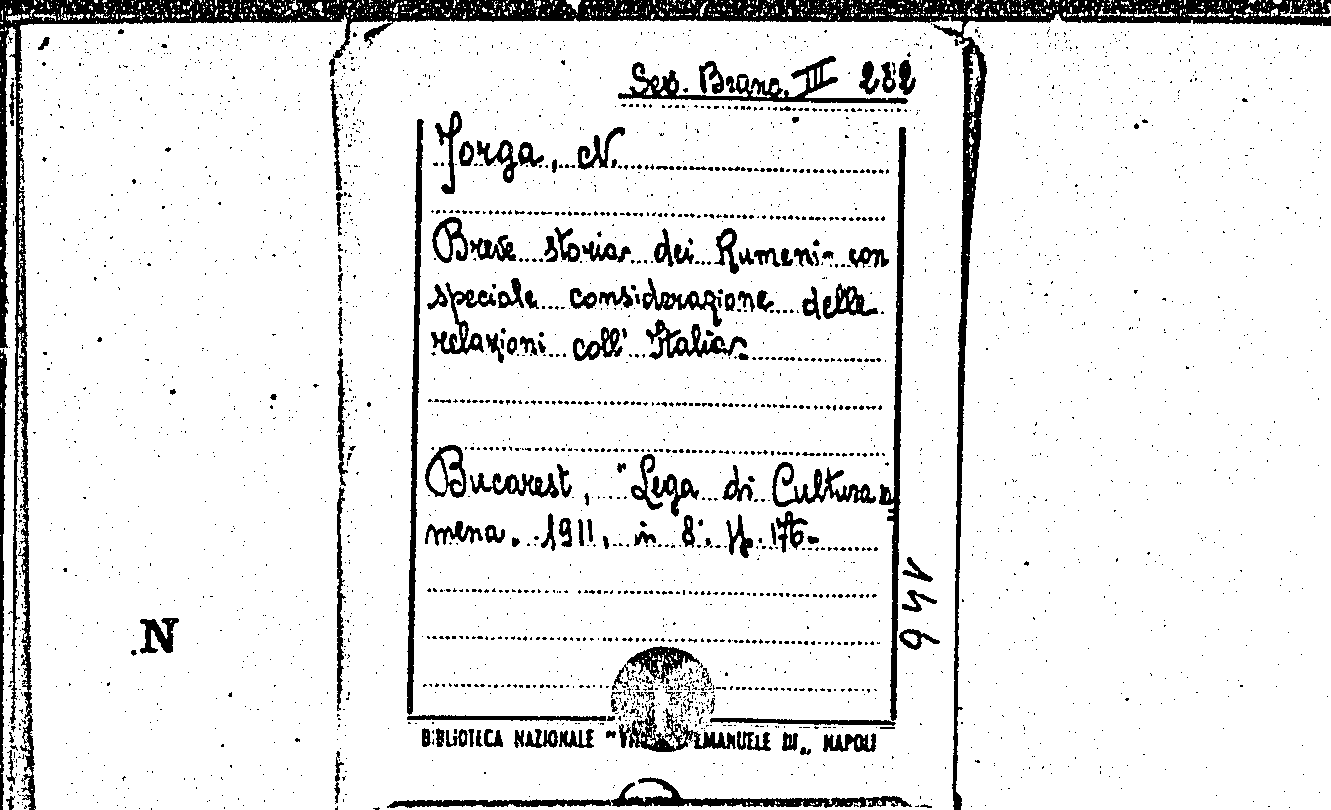 Sez. Branc. III 282
Jorga, N.
Breve storia dei Rumeni con
speciale considerazione delle
relazioni coll' Italia.
Bucarest, "Lega di Cultura ru
mena. 1911, in 8°. pp. 176.
146
N
BIBLIOTECA NAZIONALE " EMANUELE III„ NAPOLI